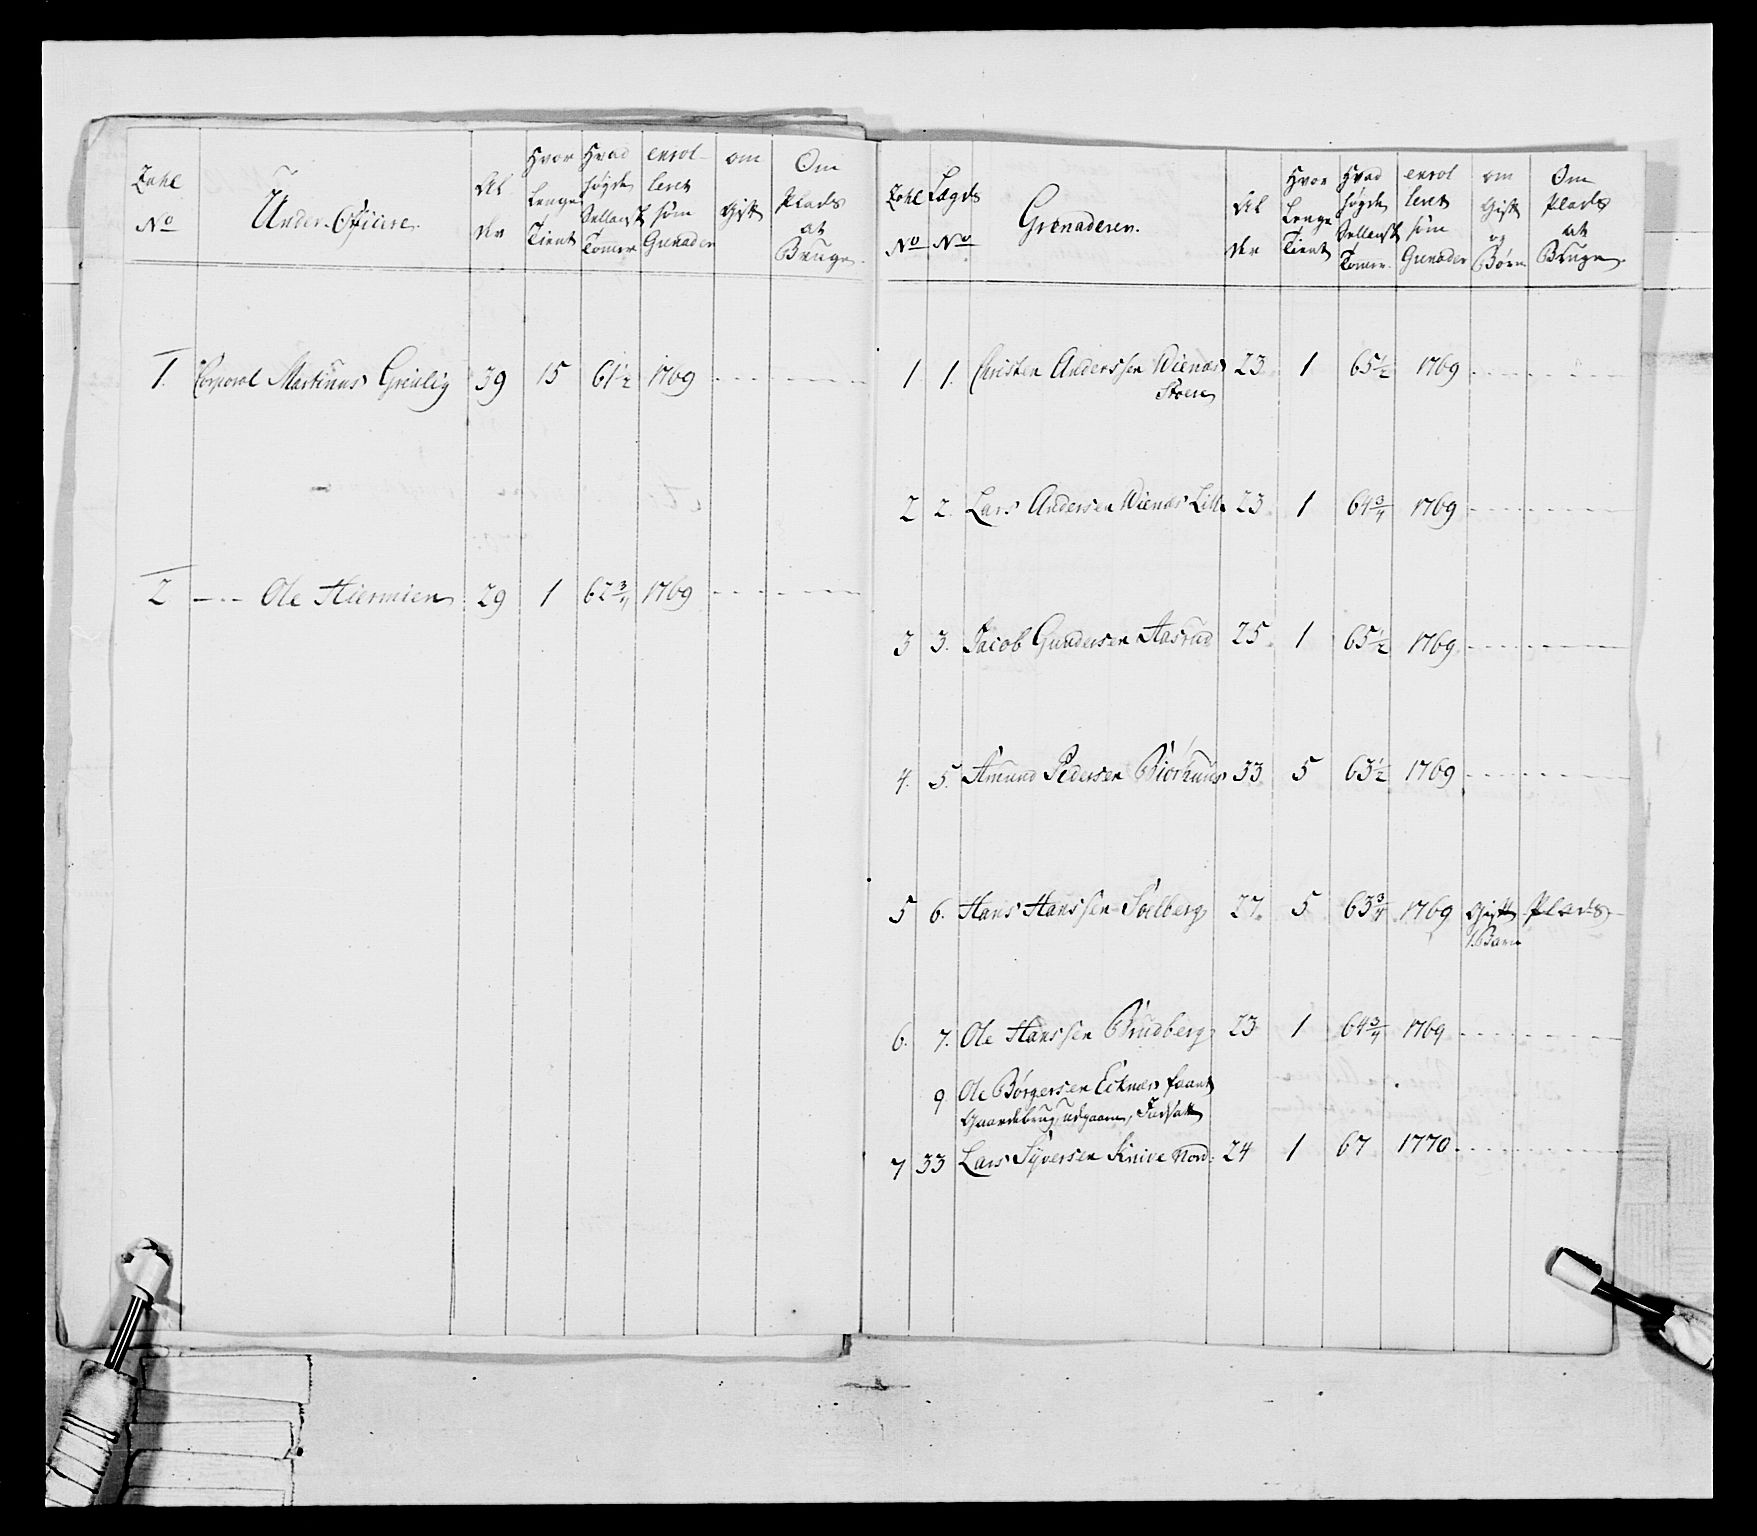 Zahl No Under-Officiere. Al der Hvor Lenge Tient Hvad høyde Sellandsk Tomer enrol- leret som Grenader om Gift Om Plads at Bruge.
1. Corporal Martinus Greulig 39 15 61½ 1769
2 Ole Hiermien 29 1 62¾ 1769
Zahl No Lægds No Grenaderer. Al der Hvor Lenge Tient Hvad høyde Sellandsk Tomer enrol leret som Grenader om Gift og Børn Om Plads at Bruge.
1 1. Christen Anderssen Wienæs 23 1 65½ 1769
Stoere
2 2. Lars Andersen Wienæs Lille 23 1 64¾ 1769
3 3. Jacob Gundersen Aasrud 25 1 65½ 1769
4. 5. Amund Pedersen Biørhuus 33 5 63½ 1769
5 6. Hans Hanssen Solberg 27 5 63¾ 1769 Gift Plads
1. Barn
6. 7. Ole Hanssen Brudberg 23 1 64¾ 1769
9. Ole Børgersen Ecknæs faaet
Gaardebrug, udgaaen, Indsatt
7 33 Lars Syversen Knive Nord: 24 1 67 1770